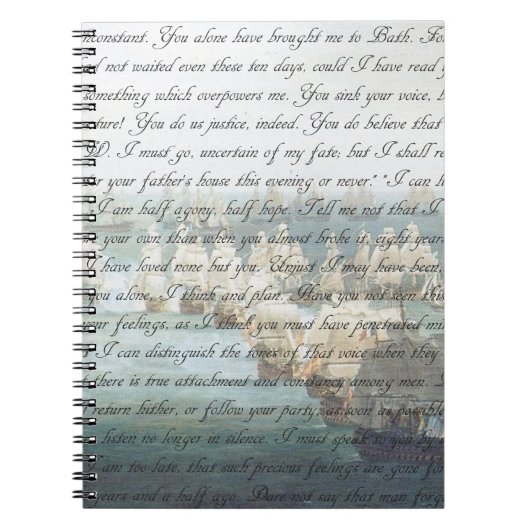 nconstant. You alone have brought me to Bath. Fo
ad not waited even these ten days, could I have read
something which overpowers me. You sink your voice,
ature! You do us justice, indeed. You do believe that
W. I must go, uncertain of my fate; but I shall re
er your father's house this evening or never." "I can li
I am half agony, half hope. Tell me not that I
re your own than when you almost broke it, eight years
I have loved none but you. Unjust I may have been,
you alone, I think and plan. Have you not seen this
your feelings, as I think you must have penetrated mi
s I can distinguish the tones of that voice when they
t there is true attachment and constancy among men.
return hither, or follow your party, as soon as possible
listen no longer in silence. I must speak to you by s
I am too late, that such precious feelings are gone for
years and a half ago. Dare not say that man forg